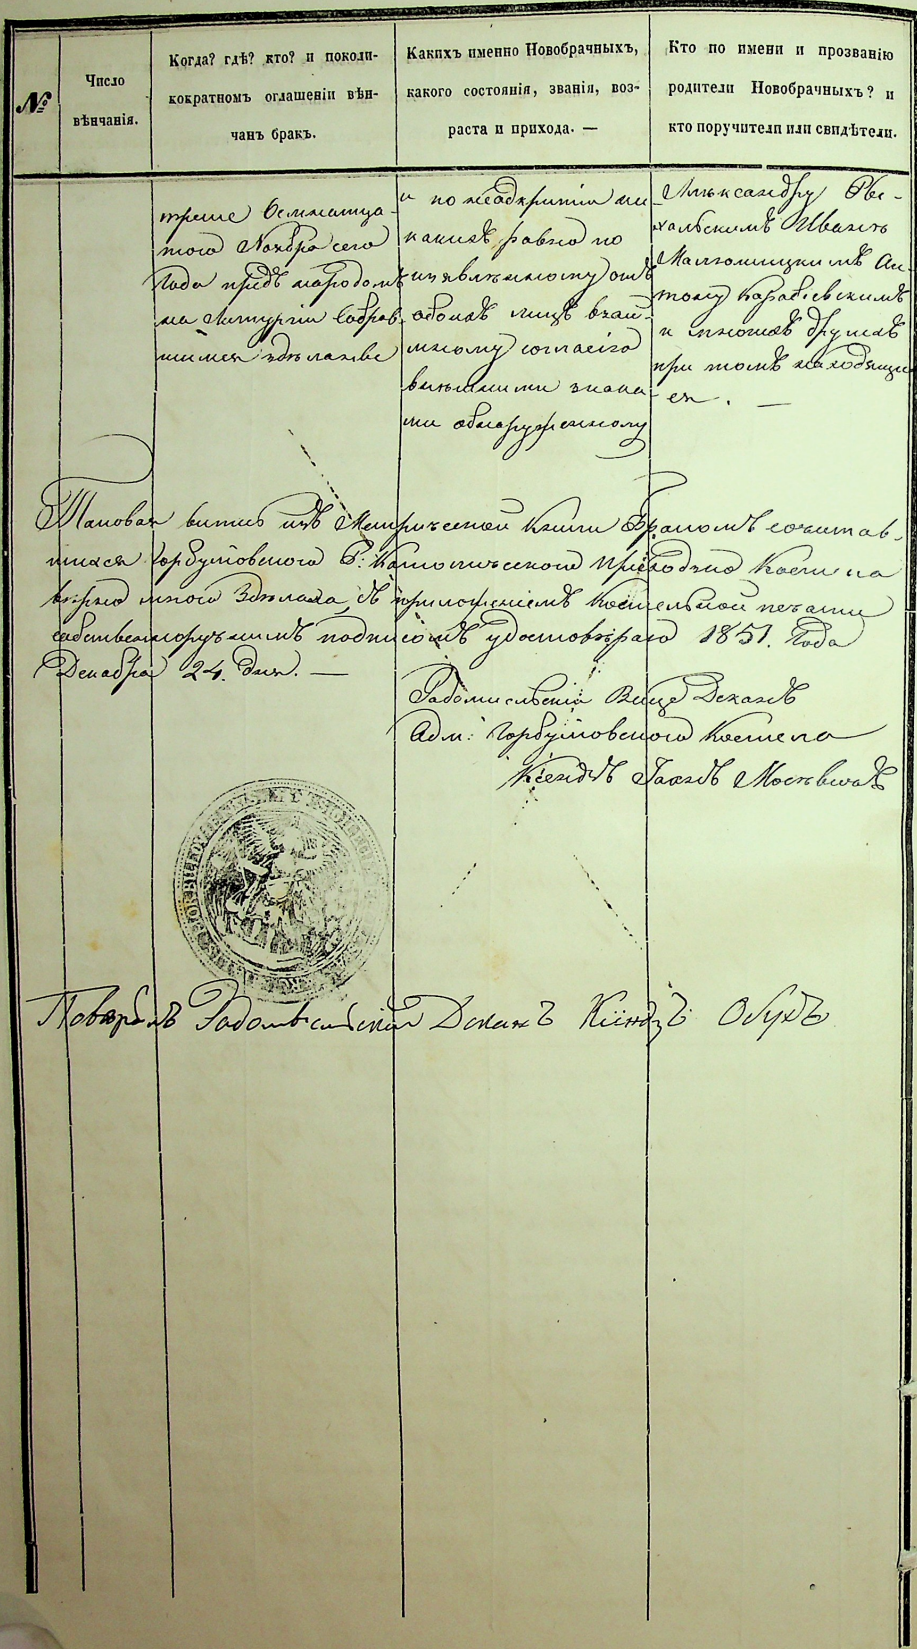 №
Число
вѣнчанія.
Когда? гдѣ? кто? и поколи-
кократномъ оглашеніи вѣн-
чанъ бракъ.
Какихъ именно Новобрачныхъ,
какого состоянія, званія, воз-
раста и прихода. —
Кто по имени и прозванію
родители Новобрачныхъ? и
кто поручители или свидѣтели.
тогоː Ноября сего
Года предъ народомъ
на Литургіи Собрав-
шимся здѣланые
и по неодкрытіи ни
какихъ равно по
изъявлѣнному отъ
обоихъ лицъ взаи-
мному согласію
внѣшними знака-
ми обнаруженному
Алѣксандру
Иванъ
Ан-
тону
и многихъ другихъ
при томъ находящи-
ся. —
Таковая выпись изъ Метрической Книги Бракомъ сочитав-
шихся Горбулёвского Р: Католического Приходзко Костела
вѣрно мною Здѣлана, съ приложеніемъ Костельной печати
собственноручнимъ подписомъ удостовѣраю 1851. Года
Декабра 24. дня. —
Радомисльскій Вице Деканъ
Адм: Горбулёвского Костела
Ксендзъ
Повѣралъ Радомысльскій Деканъ Ксіндзъ Обухъ